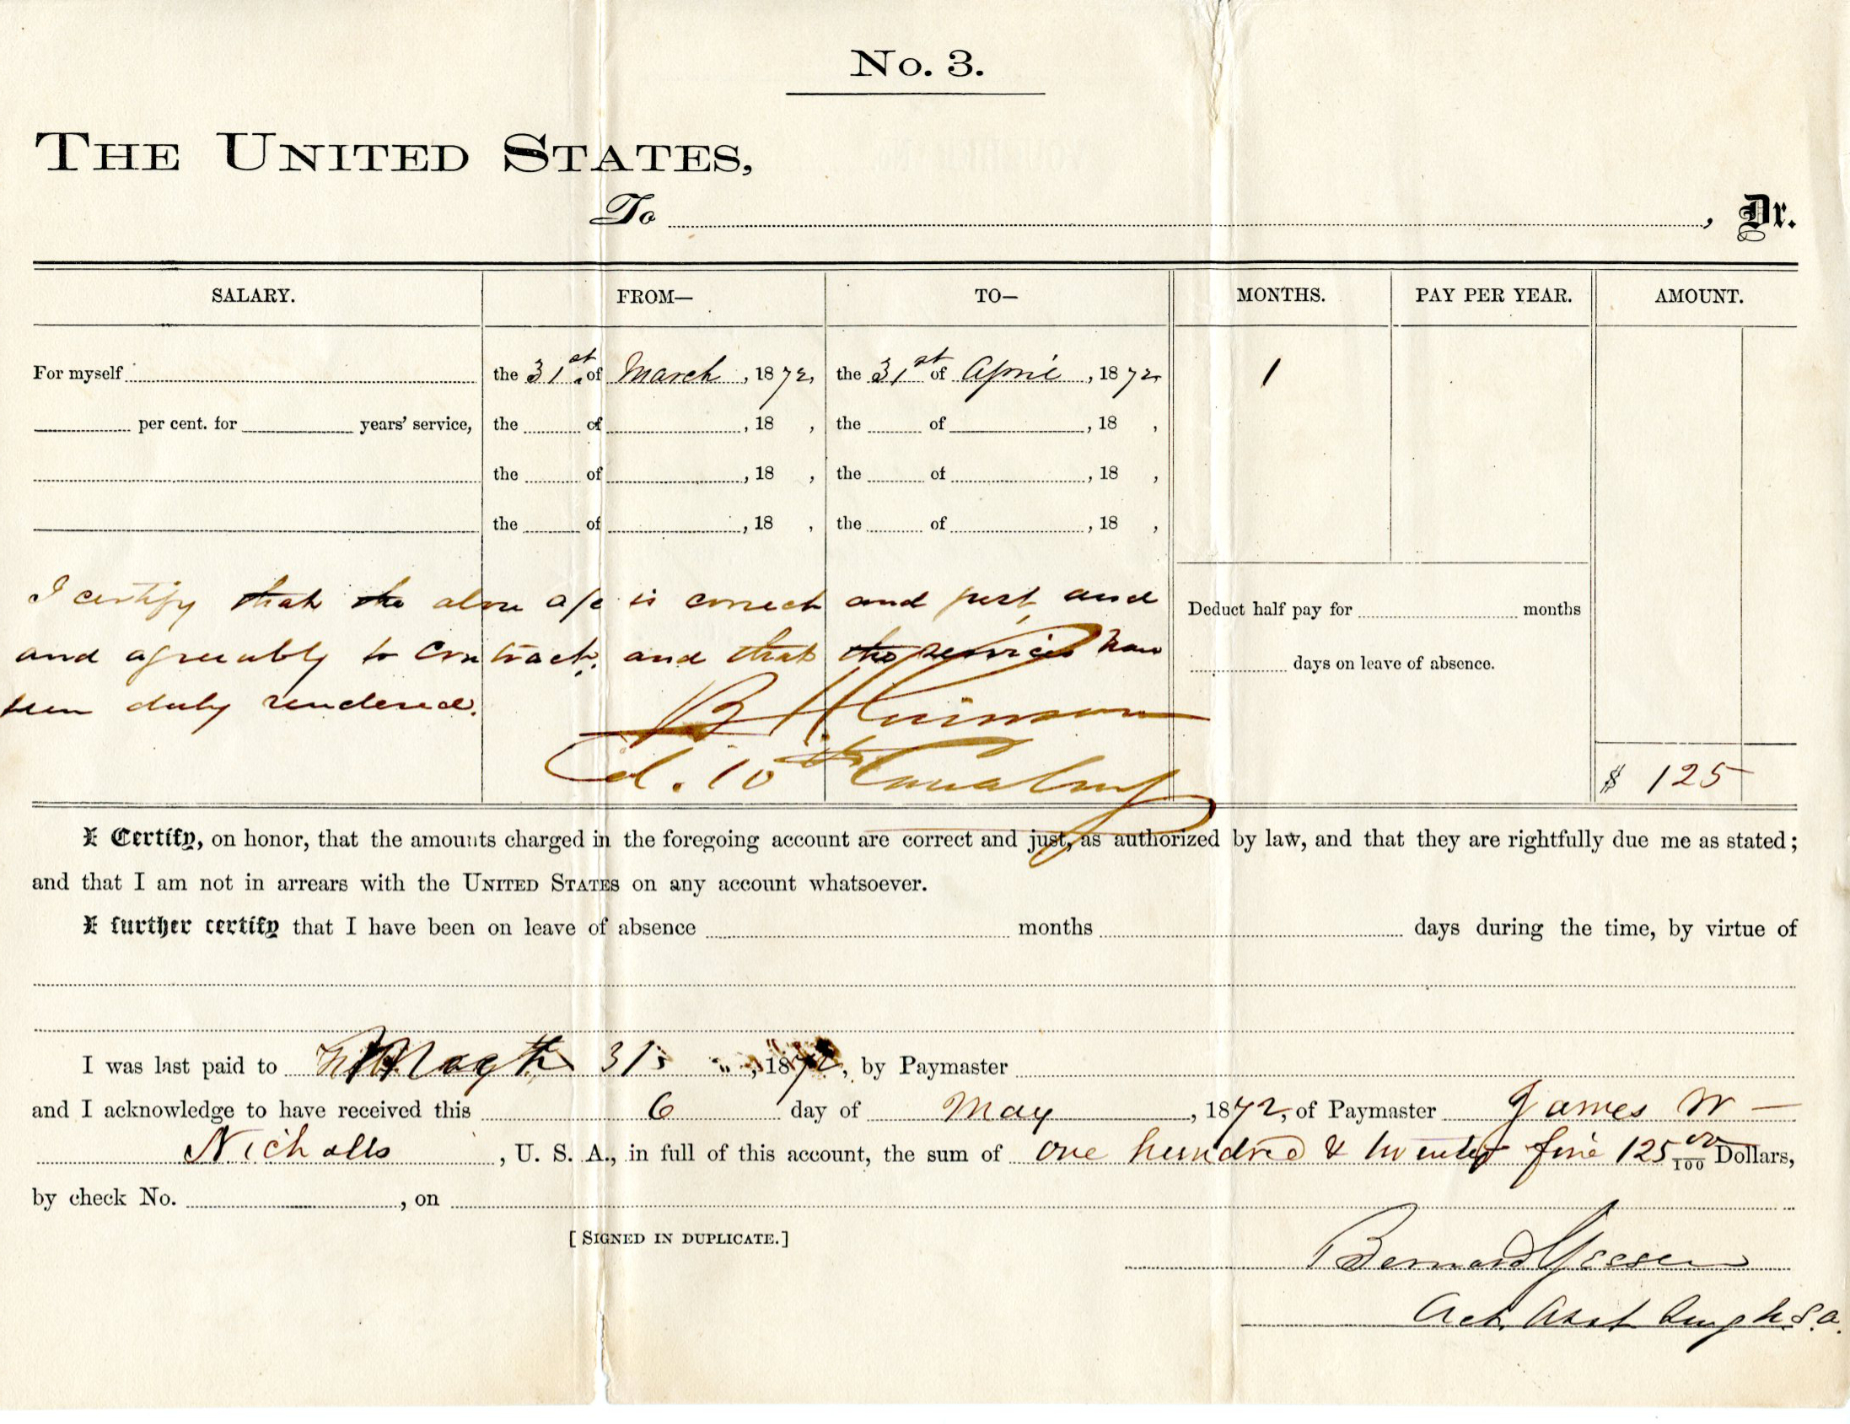 No. 3.
THE UNITED STATES,
To , Dr.
SALARY. FROM— TO— MONTHS. PAY PER YEAR. AMOUNT.
For myself the 31st of March, 1872, the 31st of April, 1872 1
per cent. for years' service, the of , 18 , the of , 18 ,
the of , 18 , the of , 18 ,
the of , 18 , the of , 18 ,
I certify that the above a/c is correct and just, and
and agreeably to contract, and that the services have
been duly rendered.
Deduct half pay for months
days on leave of absence.
B H Grierson
Col. 10th Cavalry
$ 125
I Certify, on honor, that the amounts charged in the foregoing account are correct and just, as authorized by law, and that they are rightfully due me as stated;
and that I am not in arrears with the UNITED STATES on any account whatsoever.
I further certify that I have been on leave of absence months days during the time, by virtue of
I was last paid to 31, 1872, by Paymaster
and I acknowledge to have received this 6 day of May, 1872, of Paymaster James W—
Nicholls, U. S. A., in full of this account, the sum of one hundred & twenty five 125 00/100 Dollars,
by check No. , on
[SIGNED IN DUPLICATE.]
Bernard Gessen
Act. Asst. Surg U.S.A.